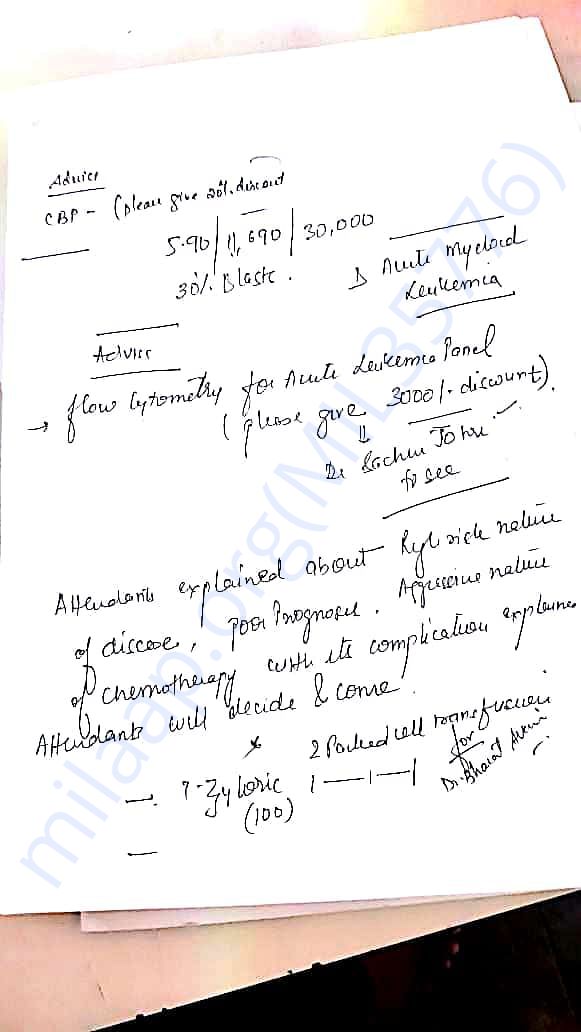 Advice
CBP - (please give 20% discount
5.90 | 11,690 | 30,000
30% Blasts.
Acute Myeloid
Leukemia
Advice
→ flow cytometry for Acute Leukemia Panel
(please give 3000/- discount).
⇓
Dr Sachin
to see
Attendants explained about nature
of disease, poor Prognosis. Aggressive nature
of chemotherapy with its complication explained
Attendants will decide & come.
2 Packed cell transfusion
→ T-Zyloric 1—1—1 for
(100) Dr. Bharat
milaap.org(MIL35776)